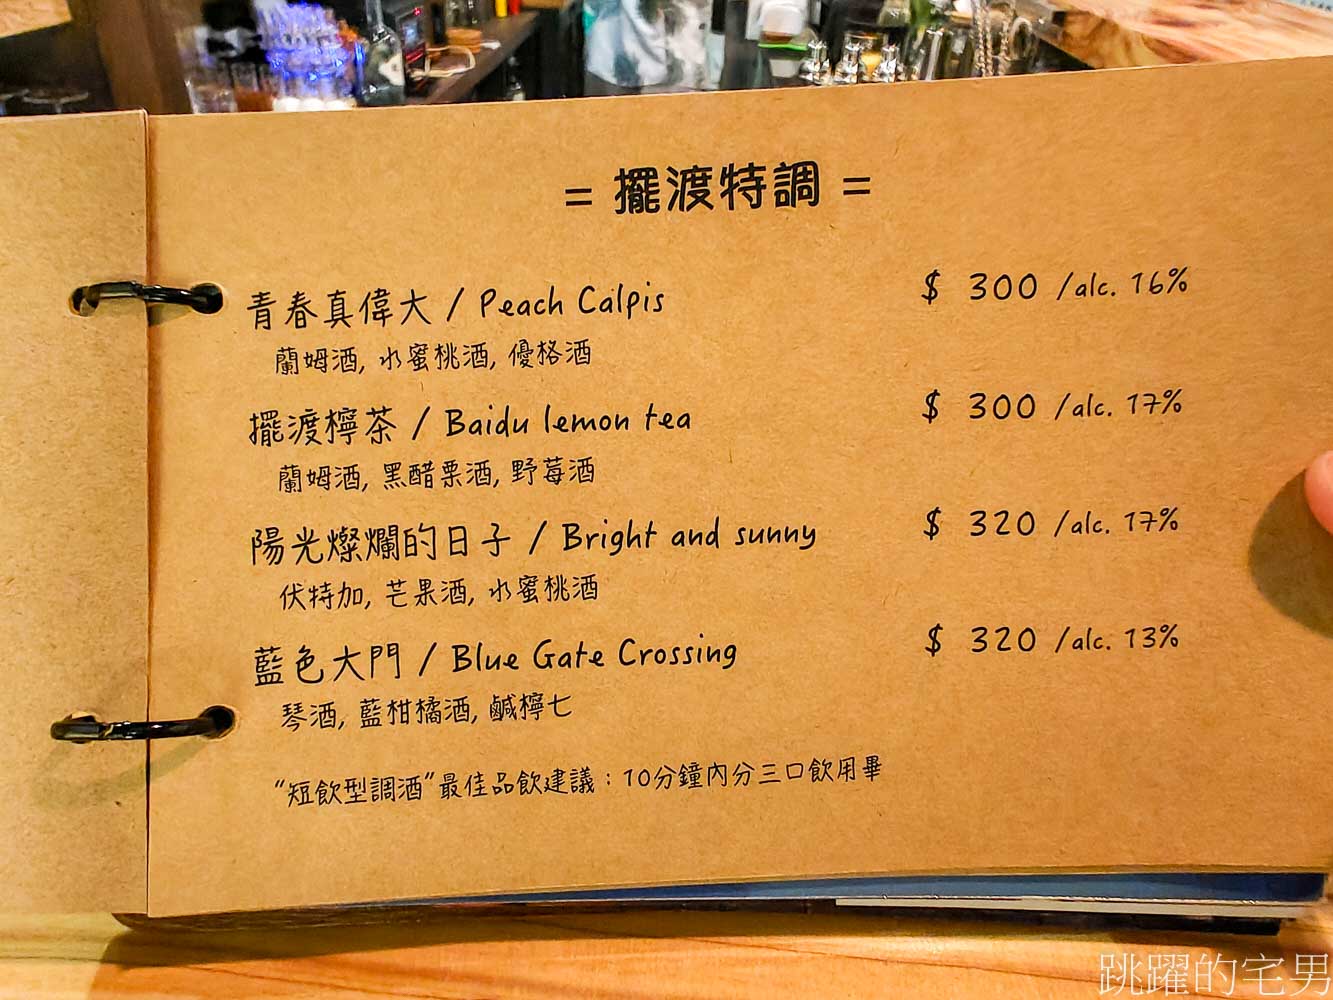 = 擺渡特調 =
青春真偉大 / Peach Calpis $ 300 /alc. 16%
蘭姆酒, 水蜜桃酒, 優格酒
擺渡檸茶 / Baidu lemon tea $ 300 /alc. 17%
蘭姆酒, 黑醋栗酒, 野莓酒
陽光燦爛的日子 / Bright and sunny $ 320 /alc. 17%
伏特加, 芒果酒, 水蜜桃酒
藍色大門 / Blue Gate Crossing $ 320 /alc. 13%
琴酒, 藍柑橘酒, 鹹檸七
“短飲型調酒”最佳品飲建議：10分鐘內分三口飲用畢
跳躍的宅男